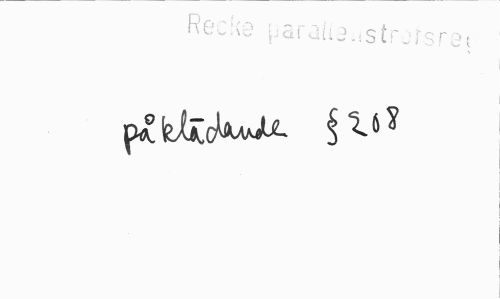 Recke parallellstrofsreg
påklädande § 208